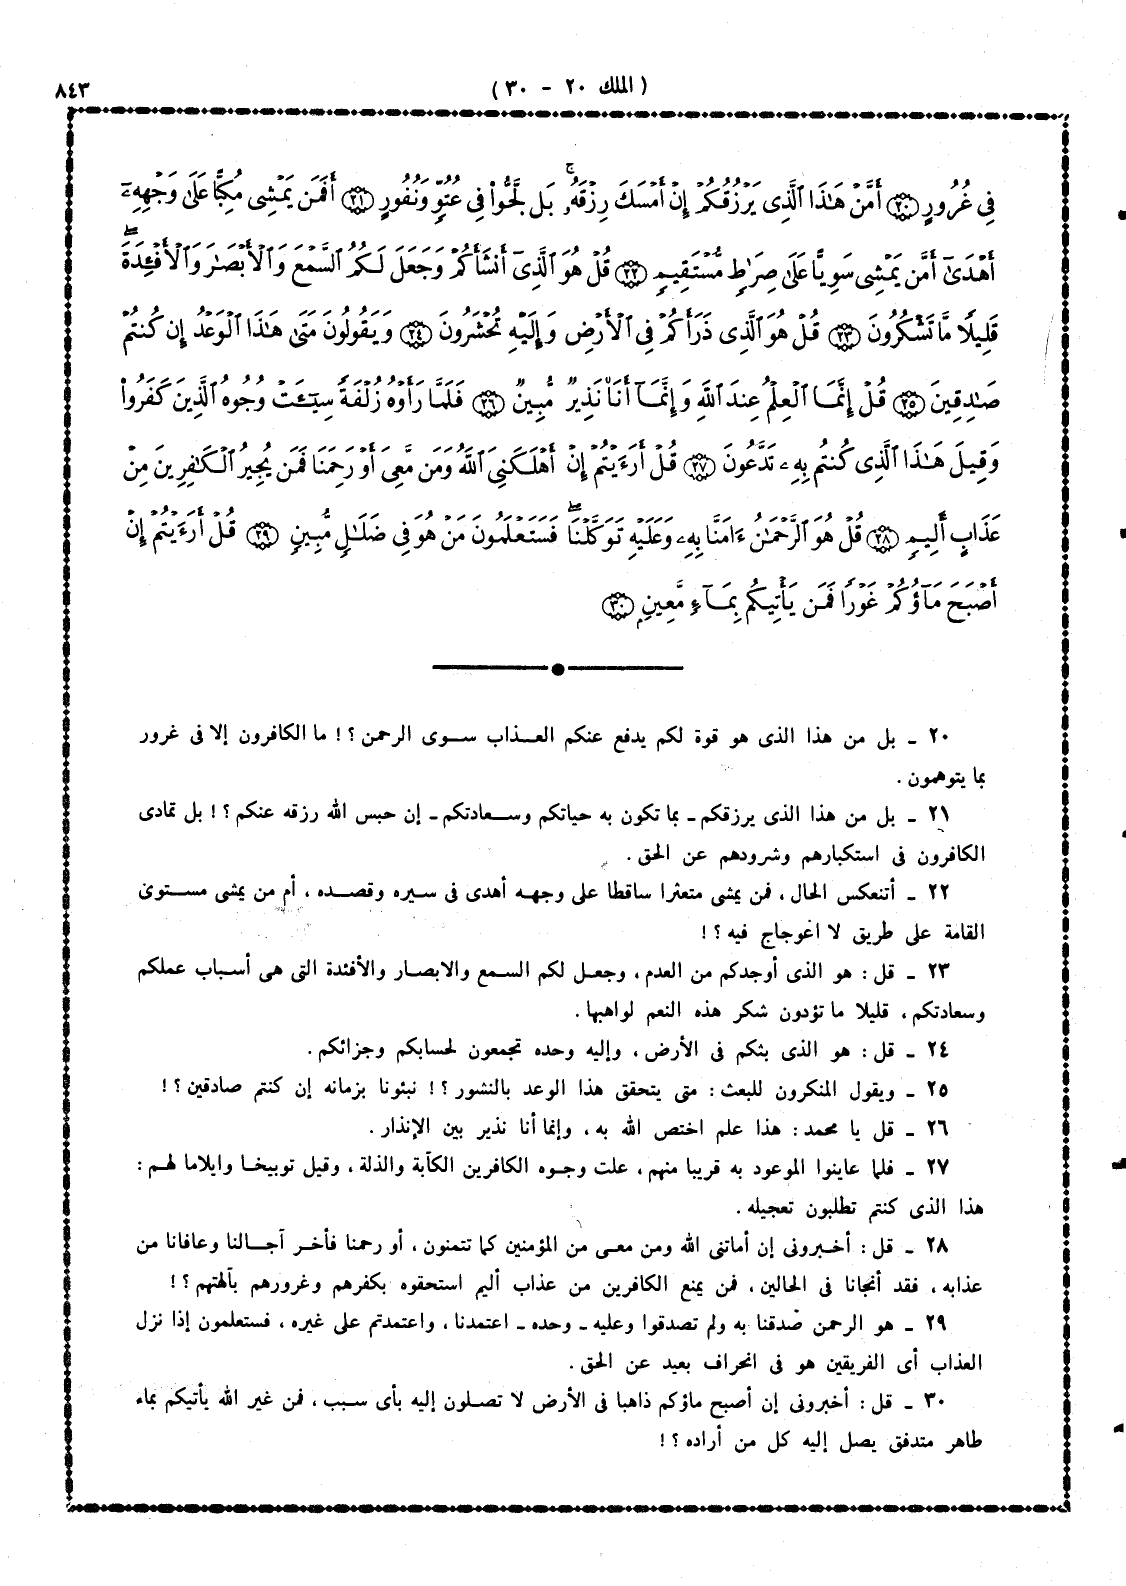 ( الملك ٢٠ - ٣٠ )
٨٤٣
فِى غُرُورٍ ﴿٢٠﴾ أَمَّنْ هَٰذَا ٱلَّذِى يَرْزُقُكُمْ إِنْ أَمْسَكَ رِزْقَهُۥۚ بَل لَّجُّوا۟ فِى عُتُوٍّ وَنُفُورٍ ﴿٢١﴾ أَفَمَن يَمْشِى مُكِبًّا عَلَىٰ وَجْهِهِۦٓ
أَهْدَىٰٓ أَمَّن يَمْشِى سَوِيًّا عَلَىٰ صِرَٰطٍ مُّسْتَقِيمٍ ﴿٢٢﴾ قُلْ هُوَ ٱلَّذِىٓ أَنشَأَكُمْ وَجَعَلَ لَكُمُ ٱلسَّمْعَ وَٱلْأَبْصَٰرَ وَٱلْأَفْـِٔدَةَۖ
قَلِيلًا مَّا تَشْكُرُونَ ﴿٢٣﴾ قُلْ هُوَ ٱلَّذِى ذَرَأَكُمْ فِى ٱلْأَرْضِ وَإِلَيْهِ تُحْشَرُونَ ﴿٢٤﴾ وَيَقُولُونَ مَتَىٰ هَٰذَا ٱلْوَعْدُ إِن كُنتُمْ
صَٰدِقِينَ ﴿٢٥﴾ قُلْ إِنَّمَا ٱلْعِلْمُ عِندَ ٱللَّهِ وَإِنَّمَآ أَنَا۠ نَذِيرٌ مُّبِينٌ ﴿٢٦﴾ فَلَمَّا رَأَوْهُ زُلْفَةً سِيٓـَٔتْ وُجُوهُ ٱلَّذِينَ كَفَرُوا۟
وَقِيلَ هَٰذَا ٱلَّذِى كُنتُم بِهِۦ تَدَّعُونَ ﴿٢٧﴾ قُلْ أَرَءَيْتُمْ إِنْ أَهْلَكَنِىَ ٱللَّهُ وَمَن مَّعِىَ أَوْ رَحِمَنَا فَمَن يُجِيرُ ٱلْكَٰفِرِينَ مِنْ
عَذَابٍ أَلِيمٍ ﴿٢٨﴾ قُلْ هُوَ ٱلرَّحْمَٰنُ ءَامَنَّا بِهِۦ وَعَلَيْهِ تَوَكَّلْنَاۖ فَسَتَعْلَمُونَ مَنْ هُوَ فِى ضَلَٰلٍ مُّبِينٍ ﴿٢٩﴾ قُلْ أَرَءَيْتُمْ إِنْ
أَصْبَحَ مَآؤُكُمْ غَوْرًا فَمَن يَأْتِيكُم بِمَآءٍ مَّعِينٍۭ ﴿٣٠﴾
٢٠ ـ بل من هذا الذى هو قوة لكم يدفع عنكم العـذاب سـوى الرحمن ؟ ! ما الكافرون إلا فى غرور
بما يتوهمون .
٢١ ـ بل من هذا الذى يرزقكم ـ بما تكون به حياتكم وسـعادتكم ـ إن حبس الله رزقه عنكم ؟ ! بل تمادى
الكافرون فى استكبارهم وشرودهم عن الحق .
٢٢ ـ أتنعكس الحال ، فمن يمشى متعثرا ساقطا على وجهـه أهدى فى سـيره وقصـده ، أم من يمشى مسـتوى
القامة على طريق لا اعوجاج فيه ؟ !
٢٣ ـ قل : هو الذى أوجدكم من العدم ، وجعـل لكم السـمع والابصـار والأفئدة التى هى أسـباب عملكم
وسعادتكم ، قليلا ما تؤدون شكر هذه النعم لواهبها .
٢٤ ـ قل : هو الذى بثكم فى الأرض ، وإليه وحده تجمعون لحسابكم وجزائكم .
٢٥ ـ ويقول المنكرون للبعث : متى يتحقق هذا الوعد بالنشور ؟ ! نبئونا بزمانه إن كنتم صادقين ؟ !
٢٦ ـ قل يا محمد : هذا علم اختص الله به ، وإنما أنا نذير بين الإنذار .
٢٧ ـ فلما عاينوا الموعود به قريبا منهم ، علت وجـوه الكافرين الكآبة والذلة ، وقيل توبيخـا وايلاما لهـم :
هذا الذى كنتم تطلبون تعجيله .
٢٨ ـ قل : أخـبرونى إن أماتنى الله ومن معـى من المؤمنين كما تتمنون ، أو رحمنا فأخـر آجـالنا وعافانا من
عذابه ، فقد أنجانا فى الحالين ، فمن يمنع الكافرين من عذاب أليم استحقوه بكفرهم وغرورهم بآلهتهم ؟ !
٢٩ ـ هو الرحمن صدقنا به ولم تصدقوا وعليه ـ وحده ـ اعتمدنا ، واعتمدتم على غيره ، فستعلمون إذا نزل
العذاب أى الفريقين هو فى انحراف بعيد عن الحق .
٣٠ ـ قل : أخبرونى إن أصبح ماؤكم ذاهبا فى الأرض لا تصـلون إليه بأى سـبب ، فمن غير الله يأتيكم بماء
طاهر متدفق يصل إليه كل من أراده ؟ !